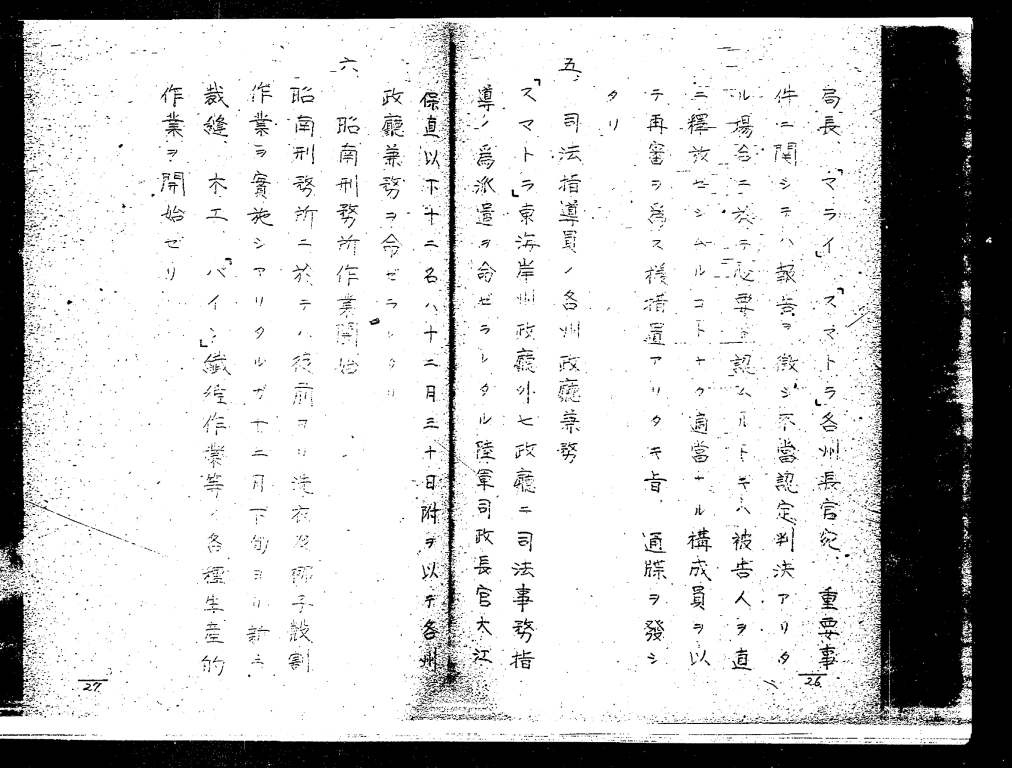 局長、「マライ」「スマトラ」各州長官宛、重要事
件ニ関シテハ報告ヲ徴シ不當認定判決アリタ
ル場合ニ於テ必要ト認ムルトキハ被告人ヲ直
ニ釋放セシムルコトナク適當ナル構成員ヲ以
テ再審ヲ為ス様措置アリタキ旨、通牒ヲ發シ
タリ
五、司法指導員ノ各州政廳兼務
「スマトラ」東海岸州政廳外七政廳ニ司法事務指
導ノ為派遣ヲ命ゼラレタル陸軍司政長官大江
26
保直以下十二名ハ十二月三十日附ヲ以テ各州
政廳兼務ヲ命ゼラレタリ
六、昭南刑務所作業開始
昭南刑務所ニ於テハ從前ヨリ洗衣及椰子殻割
作業ヲ實施シアリタルガ十二月下旬ヨリ新ニ
裁縫、木工、「パイン」纎維作業等ノ各種生産的
作業ヲ開始セリ
27